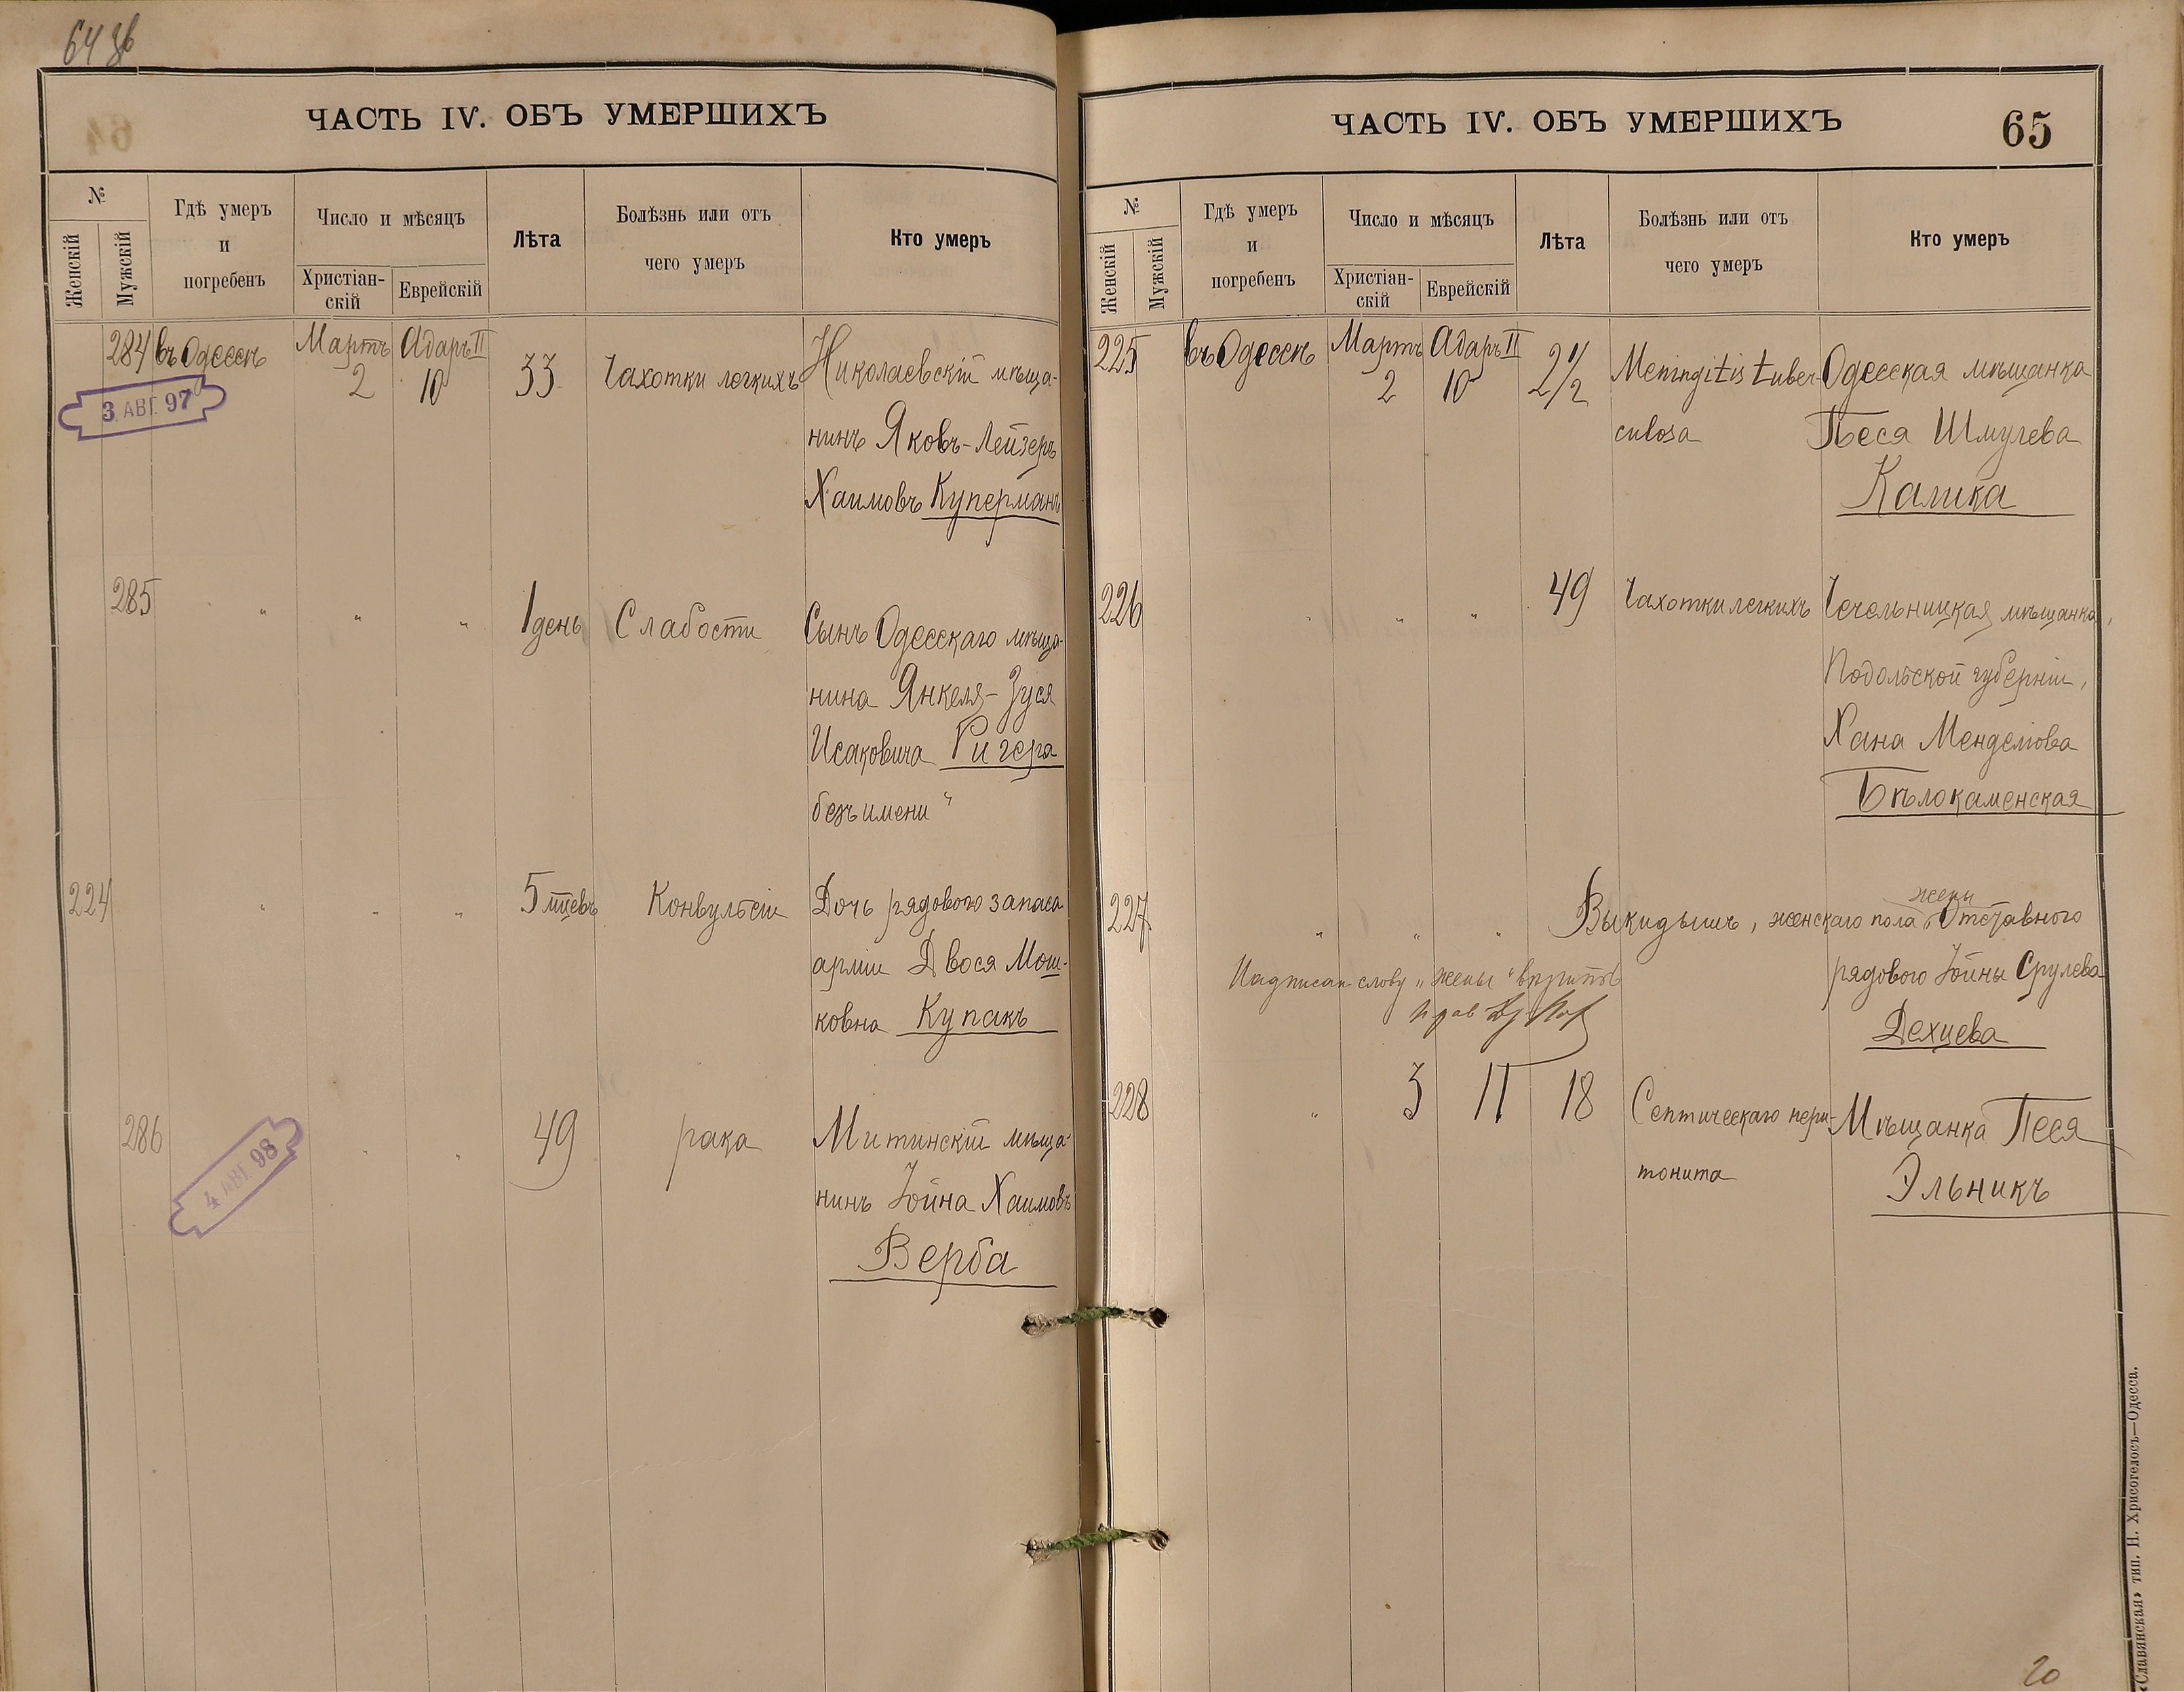 64 зв
ЧАСТЬ IV. ОБЪ УМЕРШИХЪ
№
Женскій
Мужскій
Гдѣ умеръ
и
погребенъ
Число и мѣсяцъ
Христіан-
скій
Еврейскій
Лѣта
Болѣзнь или отъ
чего умеръ
Кто умеръ
284 въ Одессѣ Мартъ 2 Адаръ II 10 33 Чахотки легкихъ Николаевскій мѣща-
нинъ Яковъ-Лейзеръ
Хаимовъ Куперманъ
3 АВГ. 97
285 " " " 1 день Слабости Сынъ Одесскаго мѣща-
нина Янкеля-Зуся
Исаковича Ригера
безъ имени "
224 " " " 5 мцевъ Конвульсіи Дочь рядового запаса
арміи Двося Мош-
ковна Купакъ
286 " " 49 рака Митинскій мѣща-
нинъ Іойна Хаимовъ
Верба
4 АВГ. 98
ЧАСТЬ IV. ОБЪ УМЕРШИХЪ
65
№
Женскій
Мужскій
Гдѣ умеръ
и
погребенъ
Число и мѣсяцъ
Христіан-
скій
Еврейскій
Лѣта
Болѣзнь или отъ
чего умеръ
Кто умеръ
225 въ Одессѣ Мартъ 2 Адаръ II 10 2 1/2 Meningitis tuber- Одесская мѣщанка
culosa Песя Шмулева
Калика
226 " " " 49 Чахотки легкихъ Чечельницкая мѣщанка,
Подольской губерніи,
Хана Менделіова
Бѣлокаменская
жены
227 " " " Выкидышъ, женскаго пола, Отставного
рядового Іойны Срулева
Дехцева
Надписан слову "жены" вѣрить
228 " 3 11 18 Септическаго пери- Мѣщанка Песя
тонита Эльникъ
«Славянская» тип. Н. Хрисогелосъ—Одесса.
20